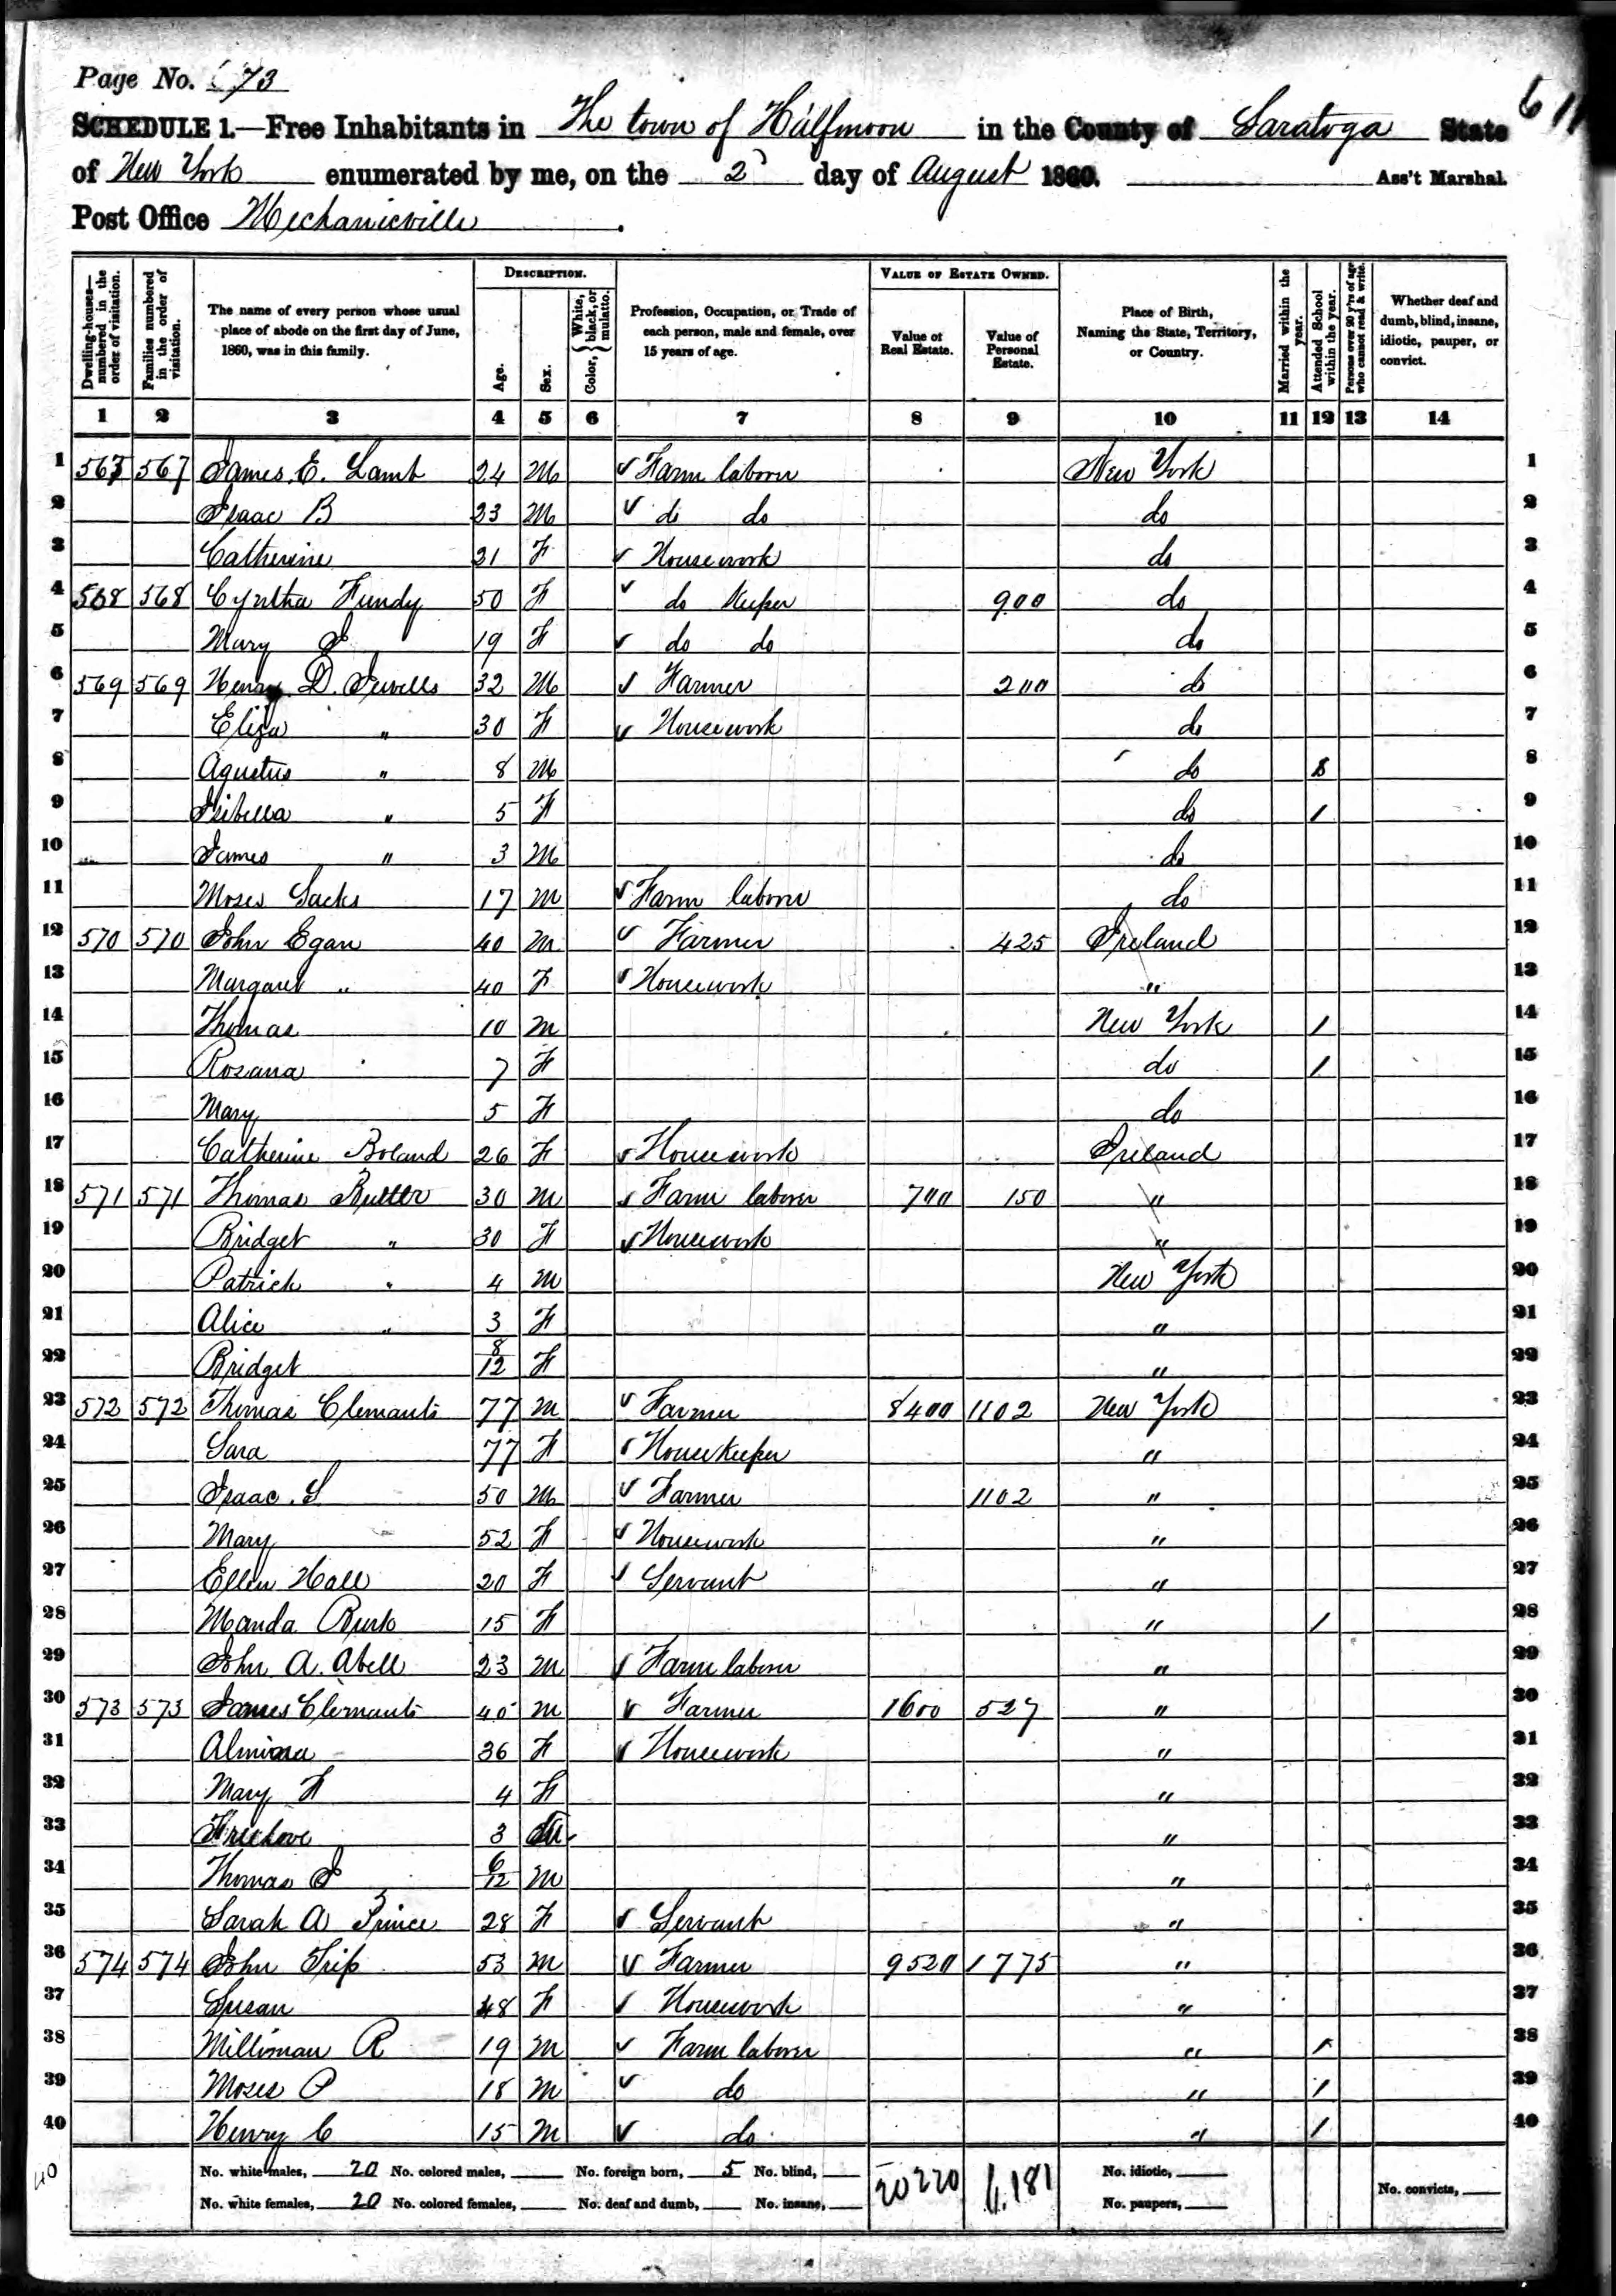 Page No. 73
SCHEDULE 1.—Free Inhabitants in The town of Halfmoon in the County of Saratoga State
of New York enumerated by me, on the 2d day of August 1860. Ass't Marshal.
Post Office Mechanicville.
Dwelling-houses—numbered in the order of visitation. Families numbered in the order of visitation. The name of every person whose usual place of abode on the first day of June, 1860, was in this family. DESCRIPTION. Age. Sex. Color, { White, black, or mulatto. Profession, Occupation, or Trade of each person, male and female, over 15 years of age. VALUE OF ESTATE OWNED. Value of Real Estate. Value of Personal Estate. Place of Birth, Naming the State, Territory, or Country. Married within the year. Attended School within the year. Persons over 20 y'rs of age who cannot read & write. Whether deaf and dumb, blind, insane, idiotic, pauper, or convict.
1 2 3 4 5 6 7 8 9 10 11 12 13 14
1 567 567 James E. Lamb 24 M Farm laborer New York 1
2 Isaac B 23 M do do do 2
3 Catherine 21 F Housework do 3
4 568 568 Cyntha Fundy 50 F do Keeper 900 do 4
5 Mary 19 F do do do 5
6 569 569 Henry D. Sewells 32 M Farmer 200 do 6
7 Eliza " 30 F Housework do 7
8 Agustus " 8 M do 8
9 Isibella " 5 F do / 9
10 James " 3 M do 10
11 Moses Sacks 17 M Farm laborer do 11
12 570 570 John Egan 40 M Farmer 425 Ireland 12
13 Margaret " 40 F Housework " 13
14 Thomas 10 M New York / 14
15 Rosana 7 F do / 15
16 Mary 5 F do 16
17 Catherine Boland 26 F Housework Ireland 17
18 571 571 Thomas Butler 30 M Farm laborer 700 150 " 18
19 Bridget " 30 F Housework " 19
20 Patrick " 4 M New York 20
21 Alice " 3 F " 21
22 Bridget 8/12 F " 22
23 572 572 Thomas Clemants 77 M Farmer 8400 1102 New York 23
24 Sara 77 F Housekeeper " 24
25 Isaac S 50 M Farmer 1102 " 25
26 Mary 52 F Housework " 26
27 Ellen Hall 20 F Servant " 27
28 Manda Burk 15 F " / 28
29 John A. Abell 23 M Farm laborer " 29
30 573 573 James Clemants 40 M Farmer 1600 527 " 30
31 Almira 36 F Housework " 31
32 Mary F 4 F " 32
33 Freelove 3 " 33
34 Thomas J 6/12 M " 34
35 Sarah A Prince 28 F Servant " 35
36 574 574 John Trip 53 M Farmer 9520 1775 " 36
37 Susan 48 F Housework " 37
38 Milliman R 19 M Farm laborer " / 38
39 Moses P 18 M do " / 39
40 Henry C 15 M do " / 40
No. white males, 20 No. colored males, No. foreign born, 5 No. blind, 20220 6,181 No. idiotic,
No. white females, 20 No. colored females, No. deaf and dumb, No. insane, No. paupers, No. convicts,
40